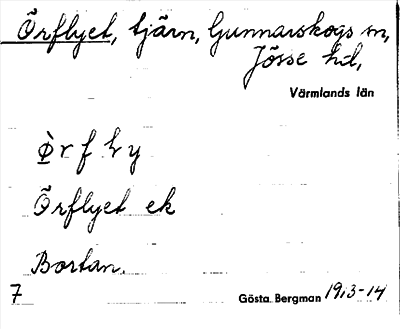 Örflyet, tjärn, Gunnarskogs sn,
Jösse hd,
Värmlands län
Örflyet ek
Bortan.
7 Gösta Bergman 1913-14